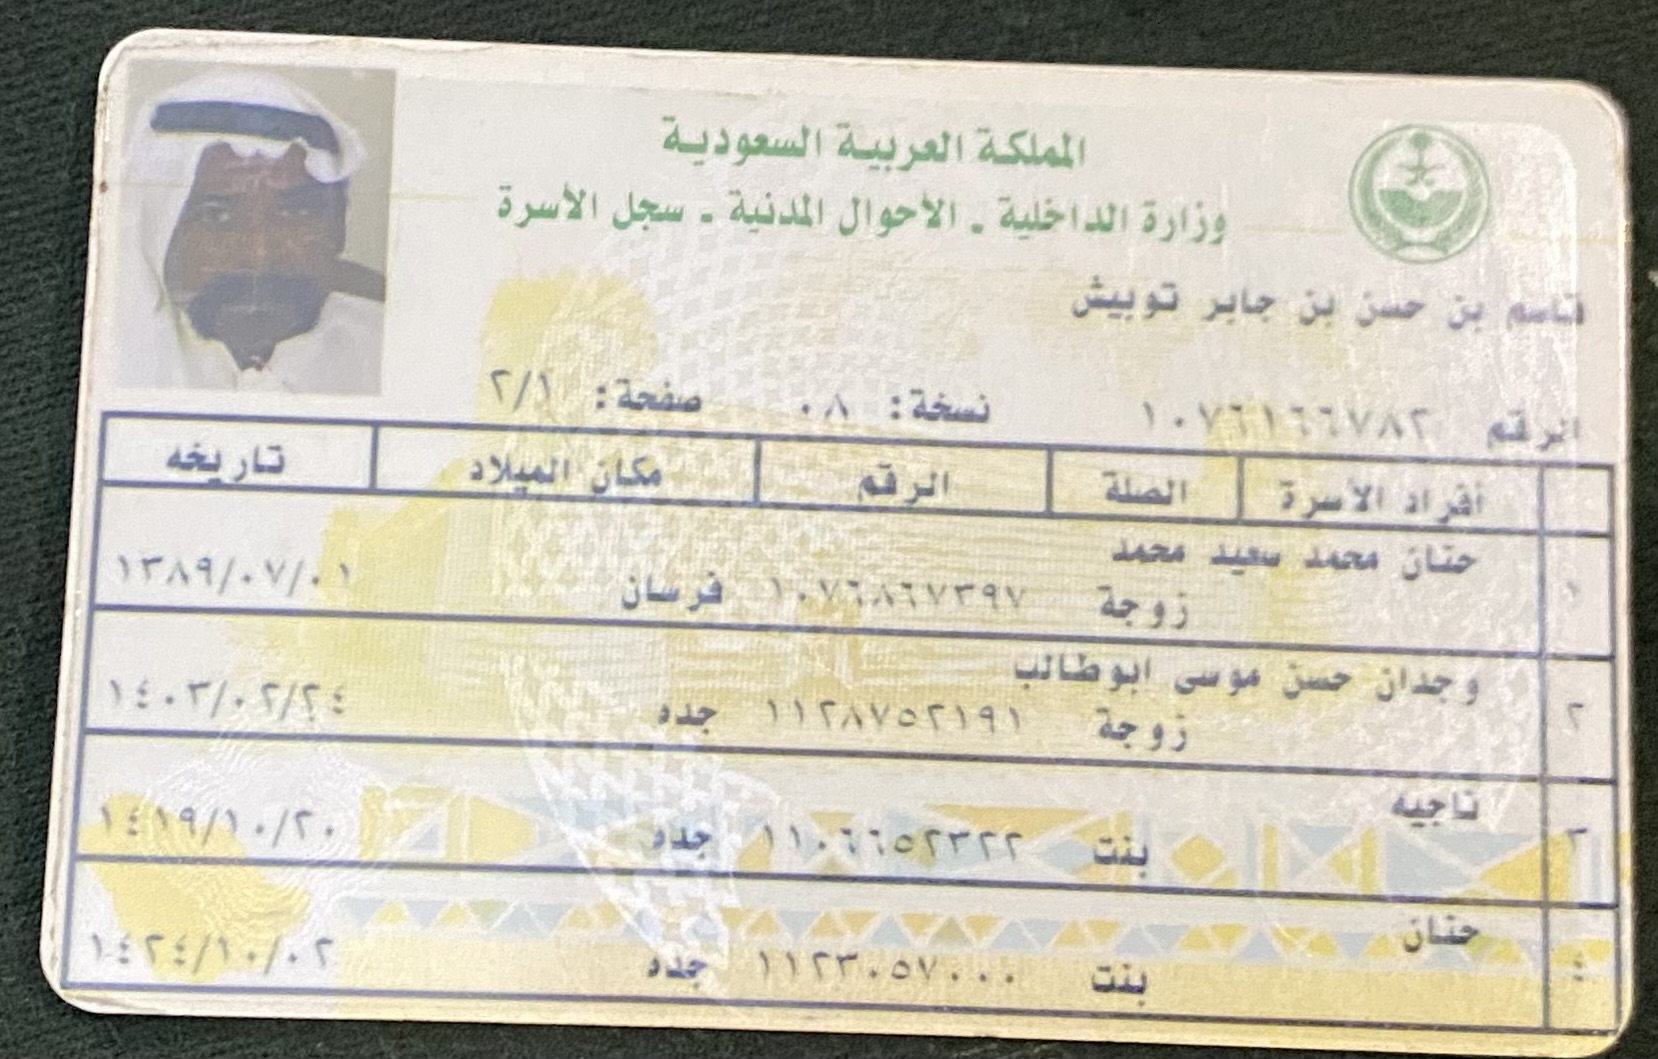 المملكة العربية السعودية
وزارة الداخلية - الأحوال المدنية - سجل الأسرة
قاسم بن حسن بن جابر توبيش
الرقم ١٠٧٦١٦٦٧٨٢ نسخة: ٠٨ صفحة: ٢/١
أفراد الأسرة الصلة الرقم مكان الميلاد تاريخه
حنان محمد سعيد محمد
١ زوجة ١٠٧٦٨٦٧٣٩٧ فرسان ١٣٨٩/٠٧/٠١
وجدان حسن موسى ابوطالب
٢ زوجة ١١٢٨٧٥٢١٩١ جده ١٤٠٣/٠٢/٢٤
ناجيه
٣ بنت ١١٠٦٦٥٢٣٢٢ جده ١٤١٩/١٠/٢٠
حنان
٤ بنت ١١٢٣٠٥٧٠٠٠ جده ١٤٢٤/١٠/٠٢